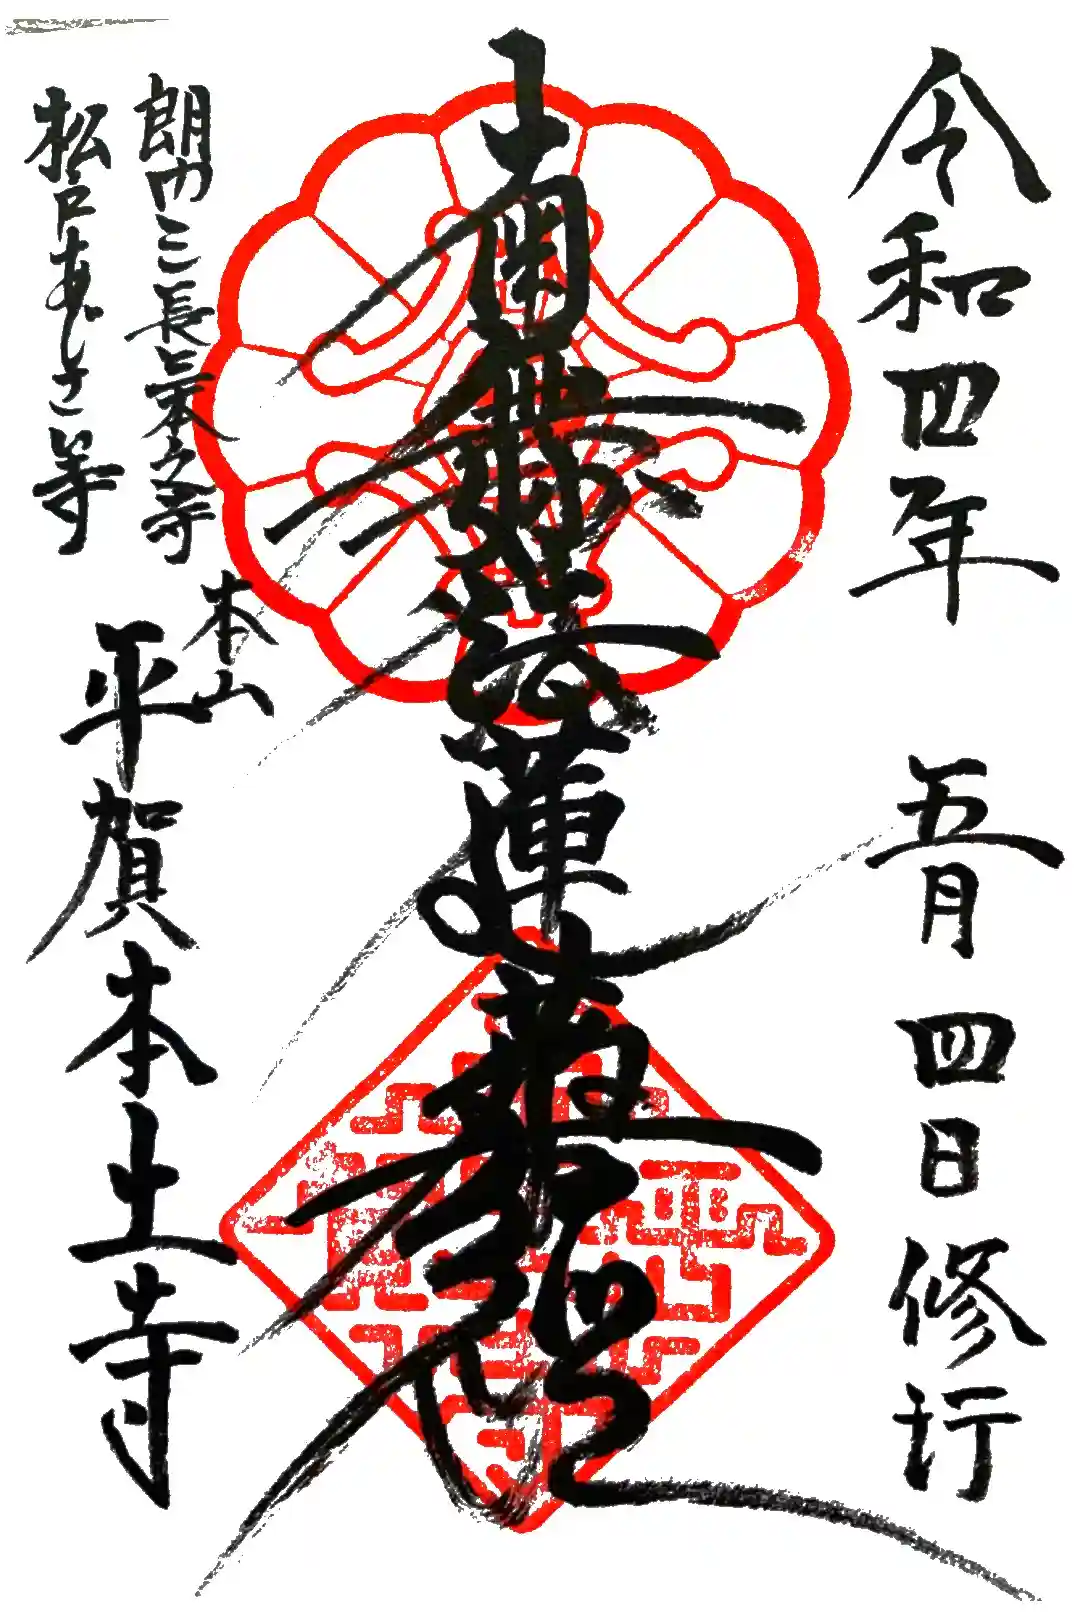 令和四年 五月四日修行
南無妙法蓮華経
朗門三長三本之寺
松戸あじさい寺
本山
平賀本土寺